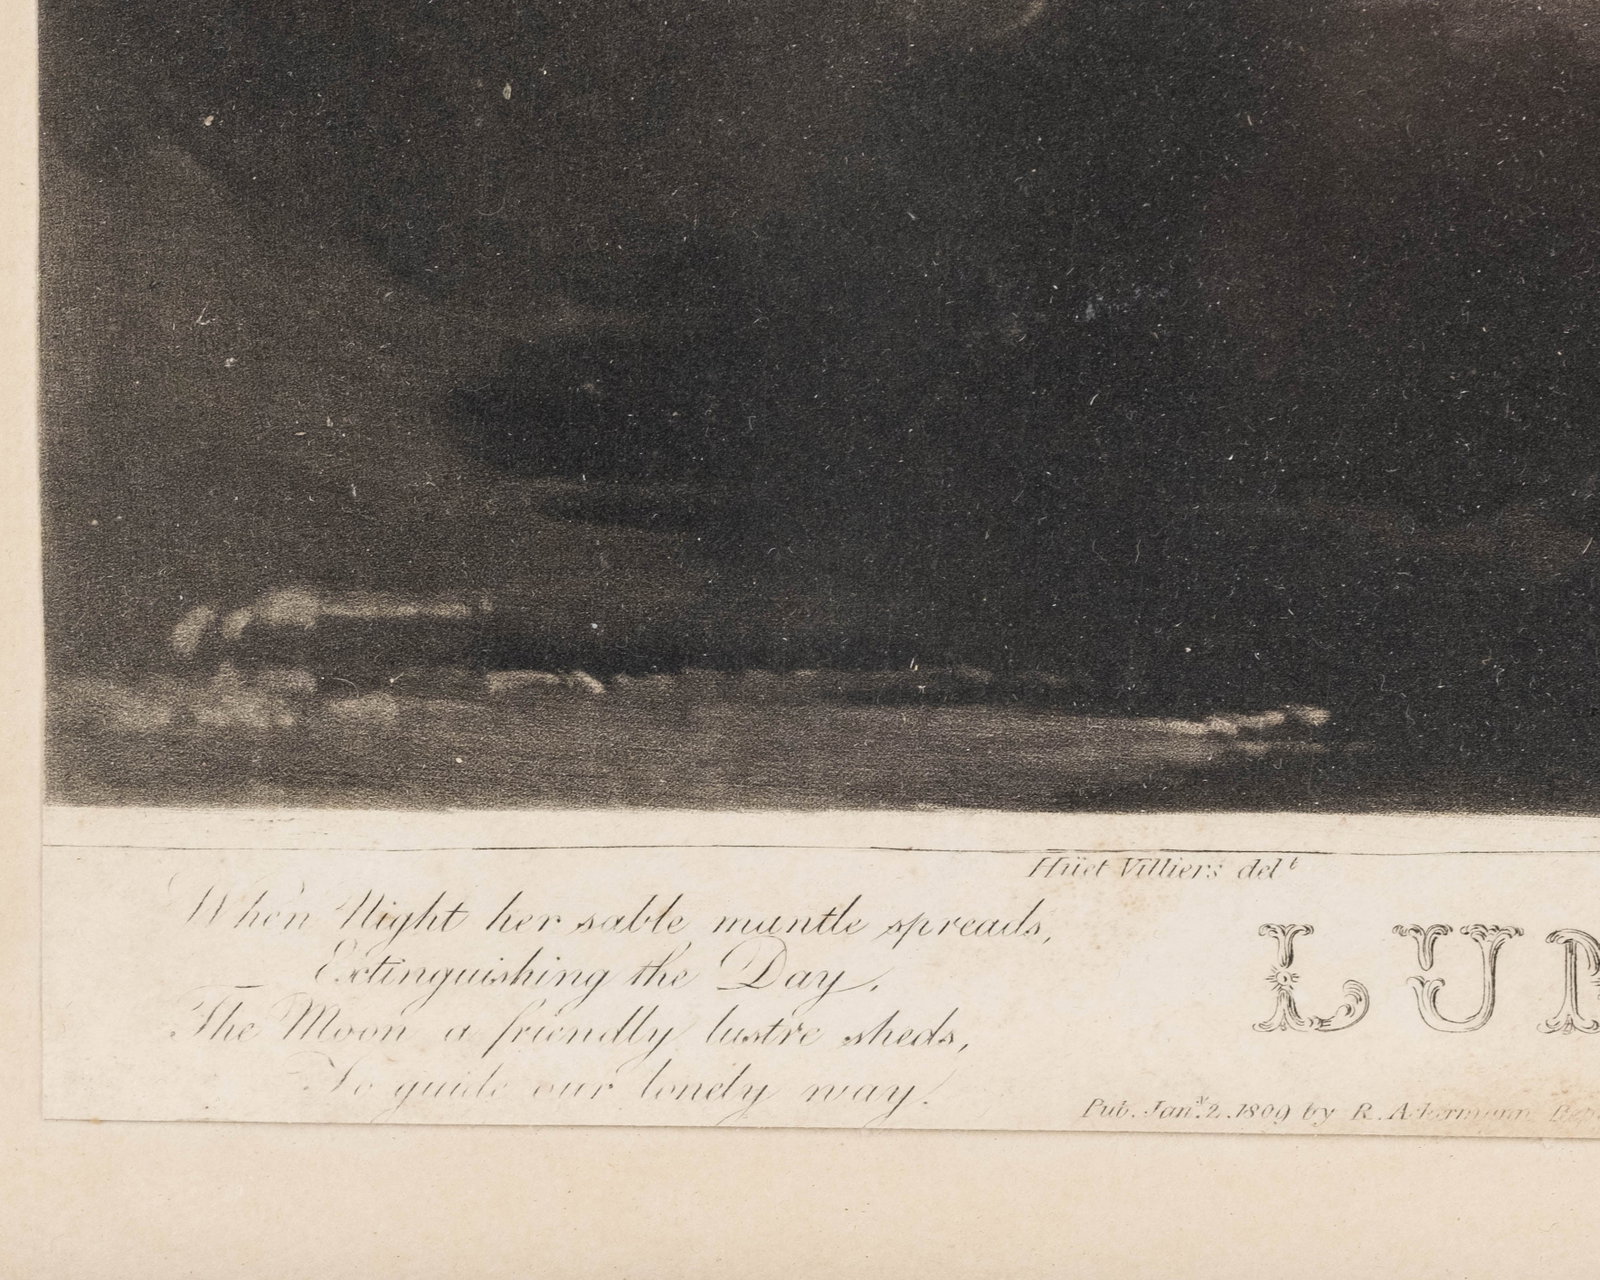 Hüet Villiers del.t
When Night her sable mantle spreads,
Extinguishing the Day,
The Moon a friendly lustre sheds,
To guide our lonely way.
LUN
Pub. Jan.y 2. 1809 by R. Ackermann